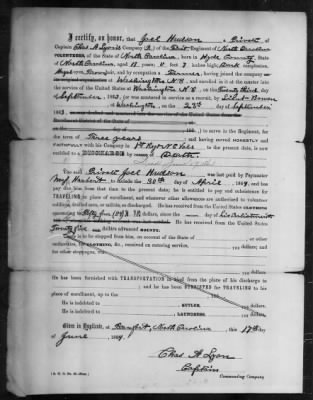 I certify, on honor, that Joel Hudson, a Private of
Captain Chas A Lyon's Company of the First Regiment of North Carolina
VOLUNTEERS, of the State of North Carolina, born in Hyde County, State
of North Carolina, aged 18 years; 5 feet 7 inches high; Dark complexion,
eyes, hair, and by occupation a Farmer, having joined the company
on its original organization at Washington N C, and enrolled in it at the muster into
the service of the United States at Washington N C, on the Twenty third day
September, 1863, (or was mustered in service as a recruit, by Lieut
at Washington, on the 23d day of September
1863,
to serve in the Regiment, for
the term of Three years; and having served HONESTLY and
FAITHFULLY with his Company in 1st Regt N C Vols to the present date, is now
entitled to a DISCHARGE by reason of Death
The said Private Joel Hudson was last paid by Paymaster
Maj. to include the 30th day of April, 1864, and has
pay due him from that time to the present date; he is entitled to pay and subsistence for
TRAVELING to place of enrolment, and whatever other allowances are authorized to volunteer
soldiers, drafted men, or militia, so discharged. He has received from the United States CLOTHING
amounting to Fifty five dollars, since the day of his enlistment
He has received from the United States
Twenty Five dollars advanced BOUNTY.
There is to be stopped from him, on account of the State of , or other
authorities, for CLOTHING, &c., received on entering service, dollars; and for
other stoppages, viz:
dollars.
He has been furnished with TRANSPORTATION in kind from the place of his discharge to
; and he has been SUBSISTED for TRAVELING to his
place of enrolment, up to the
He is indebted to , SUTLER, dollars.
He is indebted to , LAUNDRESS, dollars.
Given in duplicate, at , North Carolina, this 17th day
of June, 1864.
Chas. A Lyon
Captain
Commanding Company